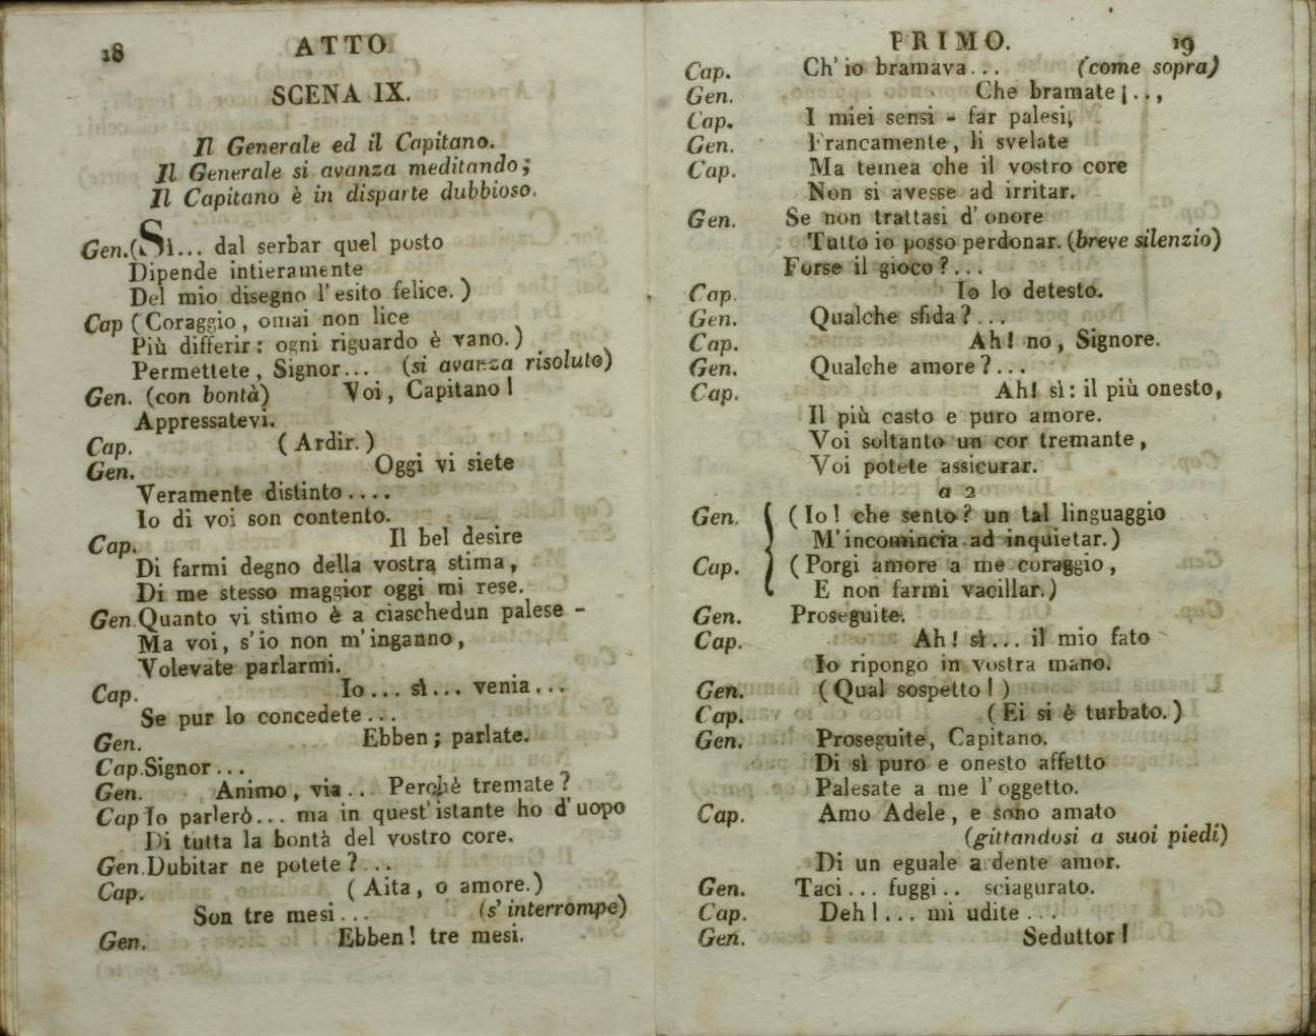 18
ATTO
SCENA IX.
Il Generale ed il Capitano.
Il Generale si avanza meditando;
Il Capitano è in disparte dubbioso.
Gen.(Sì... dal serbar quel posto
Dipende intieramente
Del mio disegno l'esito felice.)
Cap (Coraggio, omai non lice
Più differir: ogni riguardo è vano.)
Permettete, Signor... (si avanza risoluto)
Gen. (con bontà) Voi, Capitano!
Appressatevi.
Cap. (Ardir.)
Gen. Oggi vi siete
Veramente distinto....
Io di voi son contento.
Cap. Il bel desire
Di farmi degno della vostra stima,
Di me stesso maggior oggi mi rese.
Gen.Quanto vi stimo è a ciaschedun palese -
Ma voi, s'io non m'inganno,
Volevate parlarmi.
Cap. Io... sì... venia...
Se pur lo concedete...
Gen. Ebben; parlate.
Cap.Signor...
Gen. Animo, via.. Perchè tremate?
Cap Io parlerò... ma in quest'istante ho d'uopo
Di tutta la bontà del vostro core.
Gen.Dubitar ne potete?...
Cap. (Aita, o amore.)
Son tre mesi... (s'interrompe)
Gen. Ebben! tre mesi.
PRIMO.
19
Cap. Ch'io bramava... (come sopra)
Gen. Che bramate¡..,
Cap. I miei sensi - far palesi,
Gen. Francamente, li svelate
Cap. Ma temea che il vostro core
Non si avesse ad irritar.
Gen. Se non trattasi d'onore
Tutto io posso perdonar. (breve silenzio)
Forse il gioco?...
Cap. Io lo detesto.
Gen. Qualche sfida?...
Cap. Ah! no, Signore.
Gen. Qualche amore?...
Cap. Ah! sì: il più onesto,
Il più casto e puro amore.
Voi soltanto un cor tremante,
Voi potete assicurar.
a 2
Gen. (Io! che sento? un tal linguaggio
M'incomincia ad inquietar.)
Cap. (Porgi amore a me coraggio,
E non farmi vacillar.)
Gen. Proseguite.
Cap. Ah! sì... il mio fato
Io ripongo in vostra mano.
Gen. (Qual sospetto!)
Cap. (Ei si è turbato.)
Gen. Proseguite, Capitano.
Di sì puro e onesto affetto
Palesate a me l'oggetto.
Cap. Amo Adele, e sono amato
(gittandosi a suoi piedi)
Di un eguale a dente amor.
Gen. Taci... fuggi.. sciagurato.
Cap. Deh!... mi udite...
Gen. Seduttor!